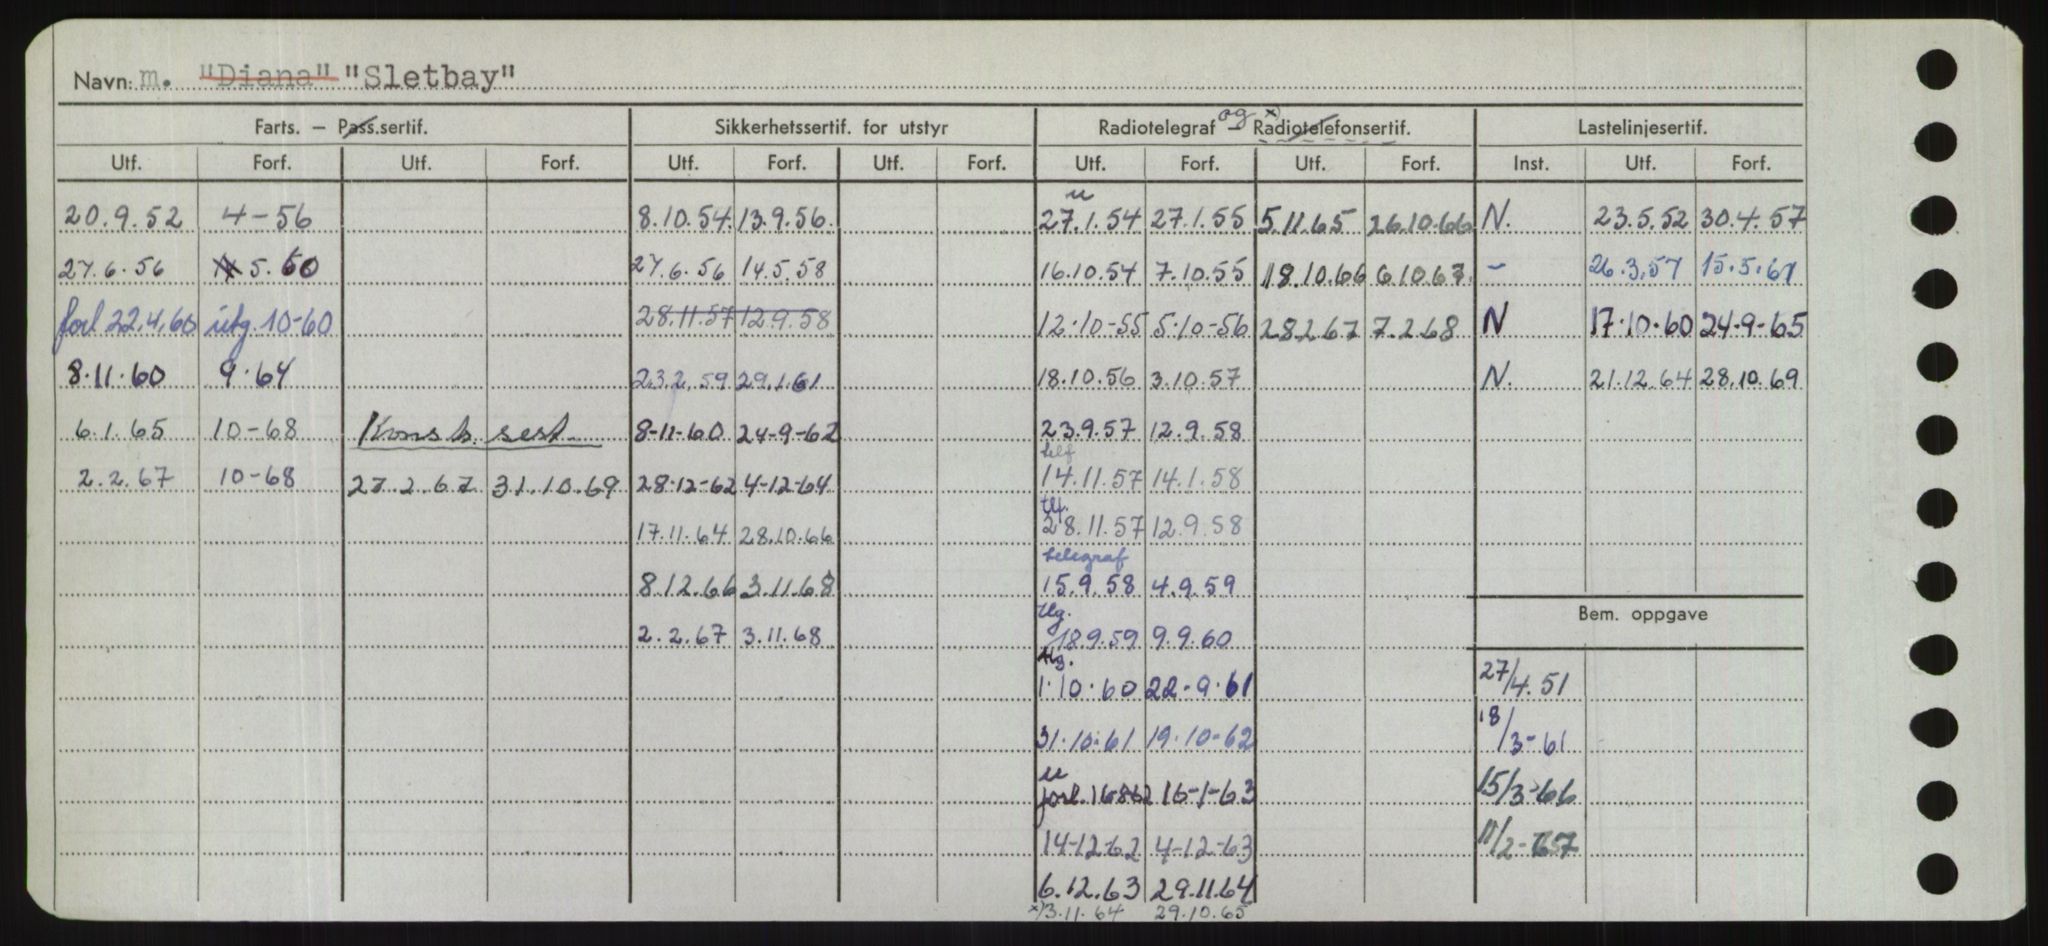 Navn: m. "Diana" "Sletbay"
Farts. – Pass.sertif. Sikkerhetssertif. for utstyr Radiotelegraf – og Radiotelefonsertif. x) Lastelinjesertif.
Utf. Forf. Utf. Forf. Utf. Forf. Utf. Forf. Utf. Forf. Utf. Forf. Inst. Utf. Forf.
u
20.9.52 4-56 8.10.54 13.9.56 27.1.54 27.1.55 5.11.65 26.10.66 N. 23.5.52 30.4.57
27.6.56 5.60 27.6.56 14.5.58 16.10.54 7.10.55 18.10.66 6.10.67. – 26.3.57 15.5.61
forl 22.4.60 utg. 10-60 28.11.57 12.9.58 12-10-55 5-10-56 28.2.67 7.2.68 N 17-10-60 24-9-65
8.11.60 9.64 23.2.59 29.1.61 18.10.56 3.10.57 N. 21.12.64 28.10.69
6.1.65 10-68 Konstr. sert. 8-11-60 24-9-62 23.9.57 12.9.58
telf
2.2.67 10-68 27.2.67 31.10.69 28-12-62 4-12-64 14.11.57 14.1.58
tlf.
17.11.64 28.10.66 28.11.57 12.9.58
telegraf
8.12.66 3.11.68 15.9.58 4.9.59
tlg. Bem. oppgave
2.2.67 3.11.68 18.9.59 9.9.60
tlg.
1.10.60 22-9-61 27/4.51
31.10.61 19.10-62 18/3-61
u
forl. 16862 16-1-63 15/3-66
14-12-62 4-12-63 11/2-67
6.12.63 29.11.64
x) 3.11.64 29.10.65